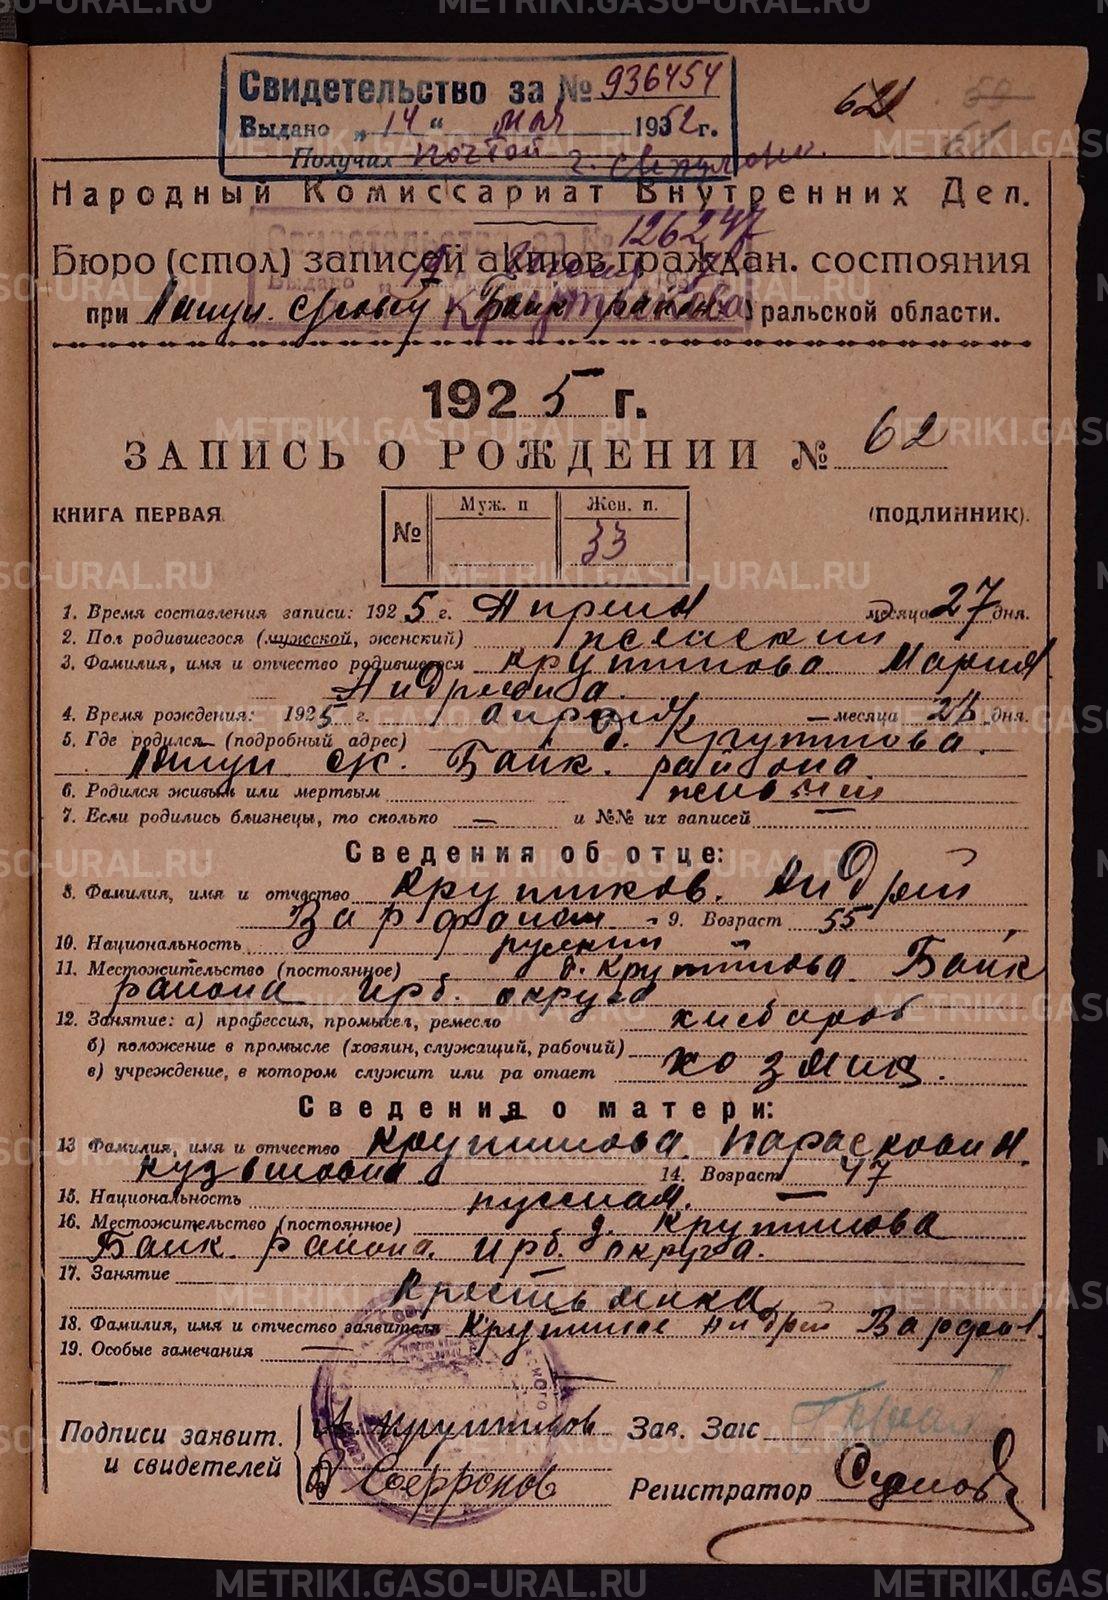 METRIKI.GASO-URAL.RU
Свидетельство за № 936454
Выдано „14“ мая 1952 г.
Получил почтой
62
Народный Комиссариат Внутренних Дел.
Свидетельство за № 126247
Бюро (стол) записей актов граждан. состояния
Выдано
при Ляпун. с/совету Байк. района Уральской области.
1925 г.
ЗАПИСЬ О РОЖДЕНИИ № 62
КНИГА ПЕРВАЯ
(ПОДЛИННИК).
№ Муж. п Жен. п.
33
1. Время составления записи: 1925 г. Апреля месяца 27 дня.
2. Пол родившегося (мужской, женский) женский
3. Фамилия, имя и отчество родившегося Крутикова Мария
Андреевна.
4. Время рождения: 1925 г. апреля месяца 26 дня.
5. Где родился (подробный адрес) д. Крутикова.
Ляпун. с/с. Байк. района.
6. Родился живым или мертвым живым
7. Если родились близнецы, то сколько — и №№ их записей —
Сведения об отце:
8. Фамилия, имя и отчество Крутиков. Андрей
Варфолом. 9. Возраст 55
10. Национальность русский
11. Местожительство (постоянное) д. Крутикова Байк
района Ирб. округа
12. Занятие: а) профессия, промысел, ремесло хлебороб
б) положение в промысле (хозяин, служащий, рабочий)
в) учреждение, в котором служит или ра отает хозяин.
Сведения о матери:
13 Фамилия, имя и отчество Крутикова. Парасковия.
Кузьмовна 14. Возраст 47
15. Национальность русская. —
16. Местожительство (постоянное) д. Крутикова
Байк. района. Ирб. округа.
17. Занятие Крестьянка
18. Фамилия, имя и отчество заявителя Крутиков Андрей Варфол.
19. Особые замечания —
Подписи заявит.
и свидетелей
А. Крутиков
Сафронов
Зав. Загс
Регистратор